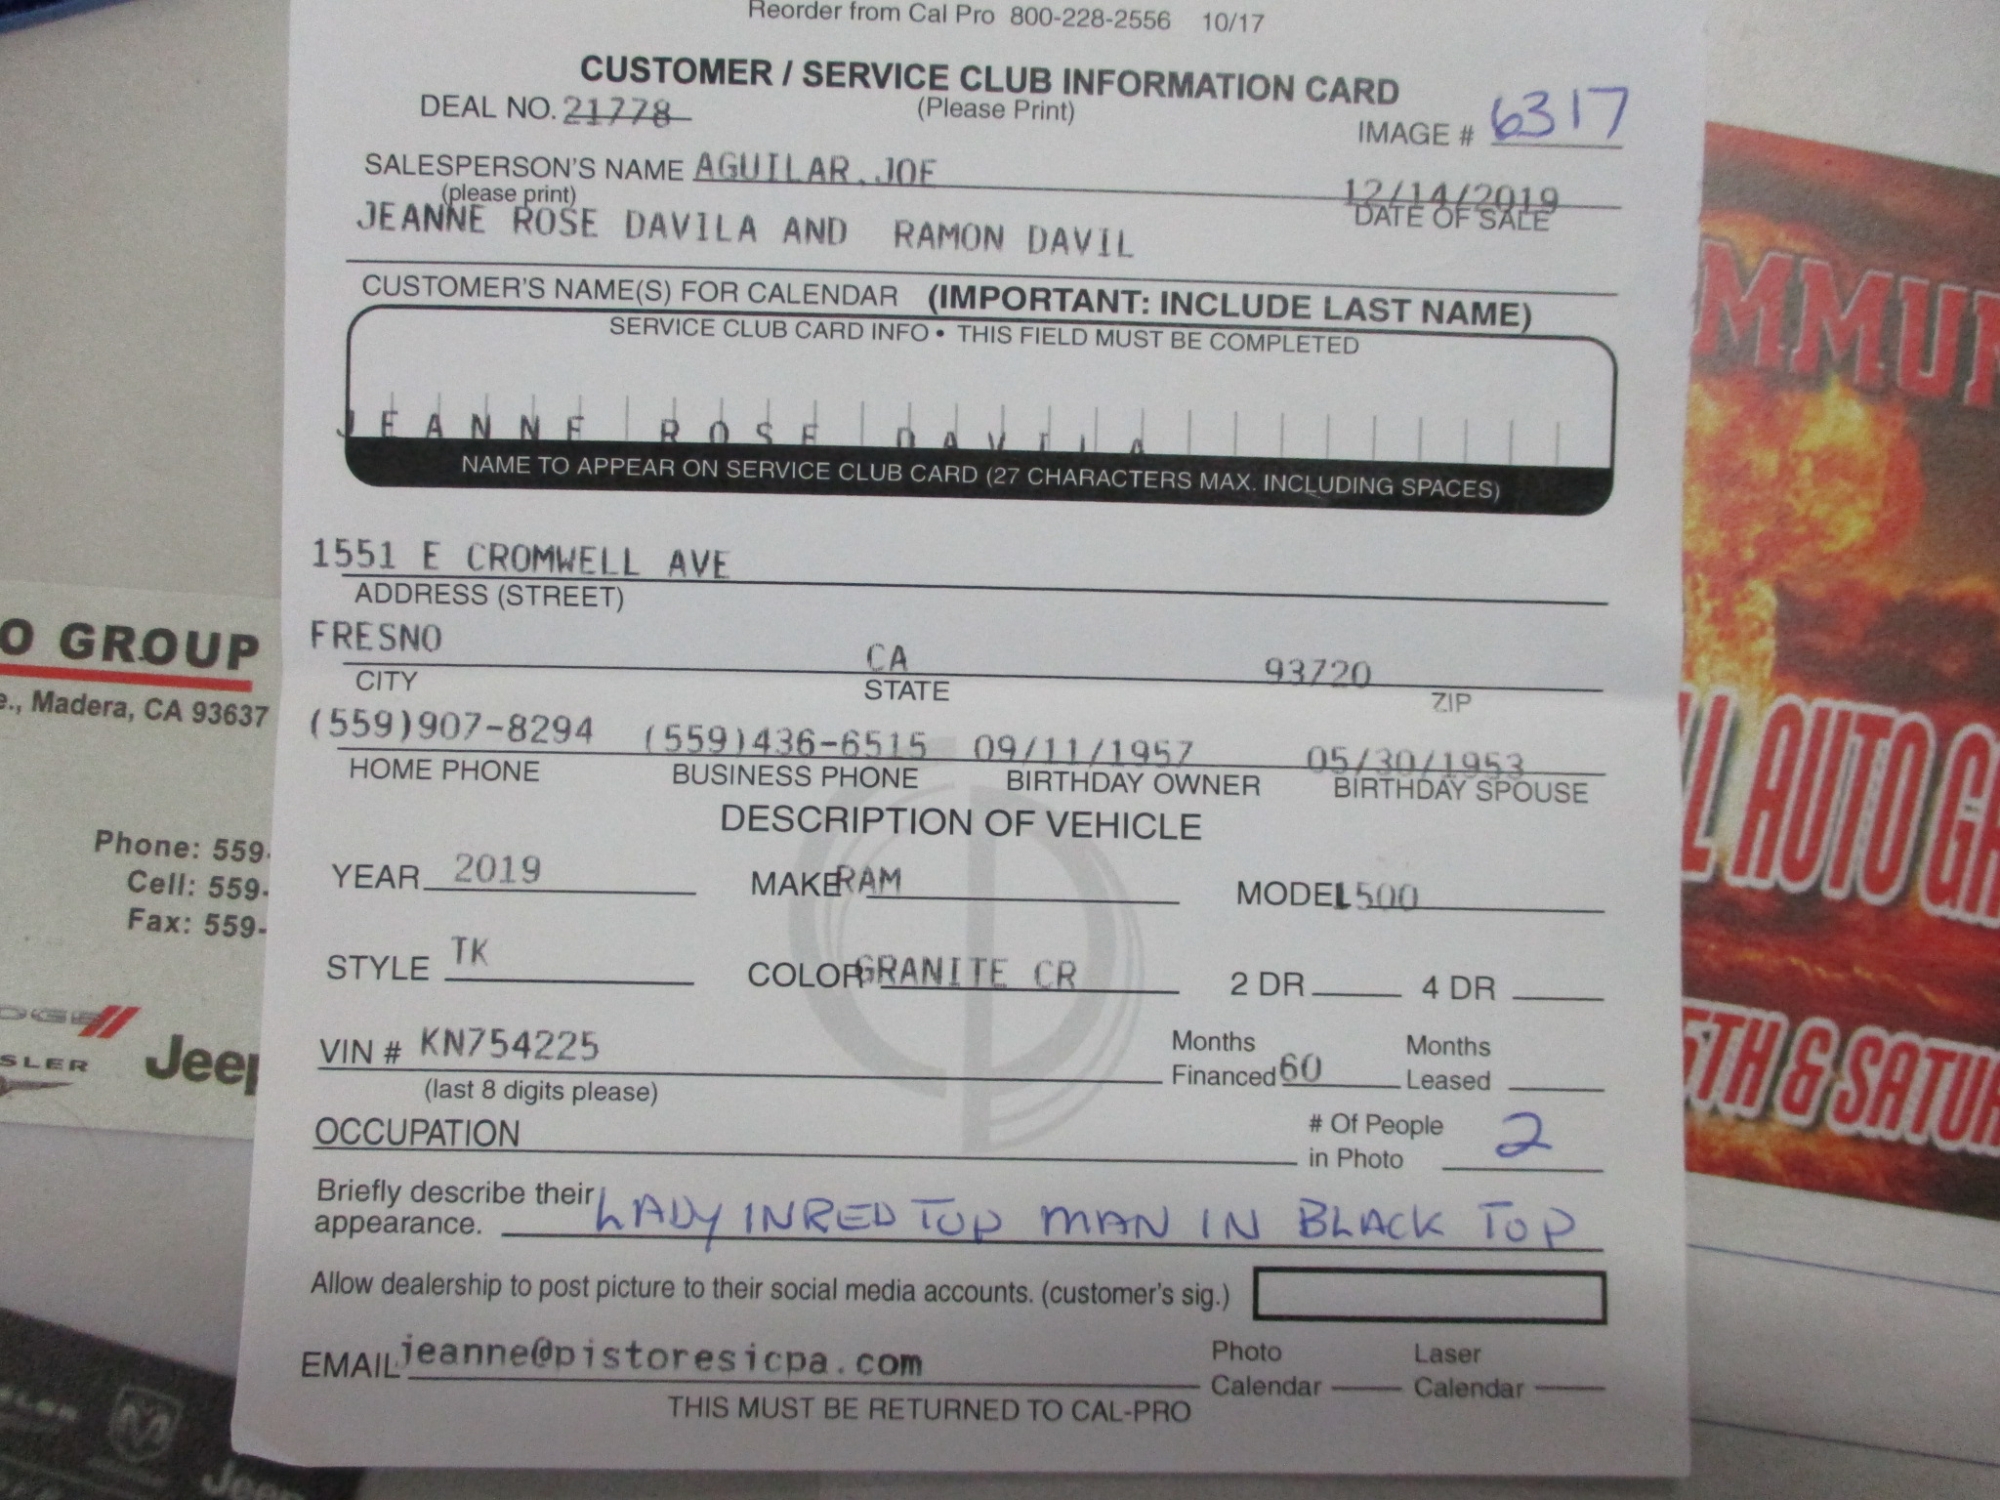 Reorder from Cal Pro 800-228-2556 10/17
CUSTOMER / SERVICE CLUB INFORMATION CARD
DEAL NO. 21778 (Please Print) IMAGE # 6317
SALESPERSON'S NAME AGUILAR, JOE 12/14/2019
(please print) DATE OF SALE
JEANNE ROSE DAVILA AND RAMON DAVIL
CUSTOMER'S NAME(S) FOR CALENDAR (IMPORTANT: INCLUDE LAST NAME)
SERVICE CLUB CARD INFO • THIS FIELD MUST BE COMPLETED
JEANNE ROSE DAVILA
NAME TO APPEAR ON SERVICE CLUB CARD (27 CHARACTERS MAX. INCLUDING SPACES)
1551 E CROMWELL AVE
ADDRESS (STREET)
FRESNO CA 93720
CITY STATE ZIP
(559)907-8294 (559)436-6515 09/11/1957 05/30/1953
HOME PHONE BUSINESS PHONE BIRTHDAY OWNER BIRTHDAY SPOUSE
DESCRIPTION OF VEHICLE
YEAR 2019 MAKE RAM MODEL 1500
STYLE TK COLOR GRANITE CR 2 DR 4 DR
VIN # KN754225 Months Financed 60 Months Leased
(last 8 digits please)
OCCUPATION # Of People in Photo 2
Briefly describe their appearance. LADY IN RED TOP MAN IN BLACK TOP
Allow dealership to post picture to their social media accounts. (customer's sig.)
EMAIL jeanne@pistoresicpa.com Photo Calendar Laser Calendar
THIS MUST BE RETURNED TO CAL-PRO
O GROUP
e., Madera, CA 93637
Phone: 559-
Cell: 559-
Fax: 559-
DGE
SLER
Jeep
Jeep
MMUN
LL AUTO GR
5TH & SATUR